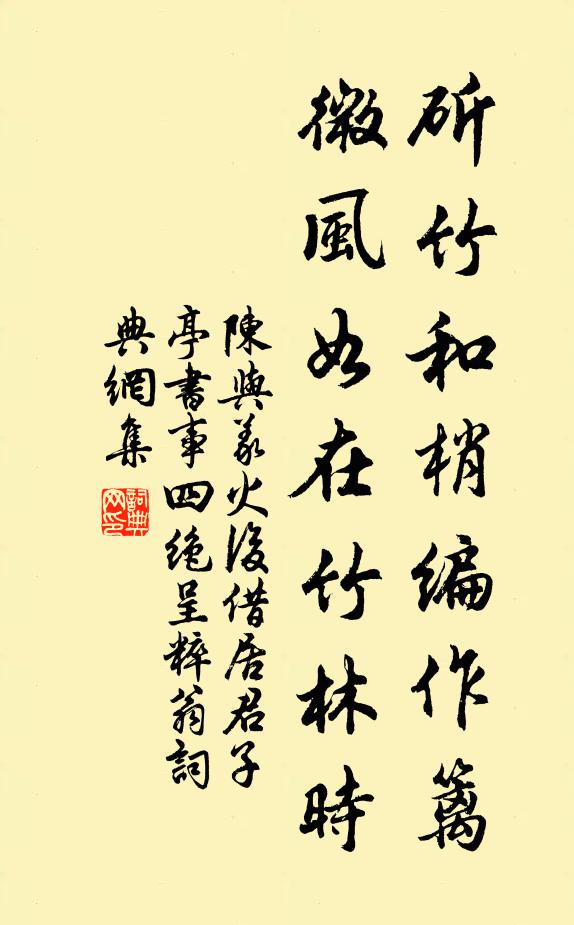 斫竹和梢編作籬
微風如在竹林時
陳與義火後借居君子
亭書事四絶呈粹翁詞
典網集
詞典网印